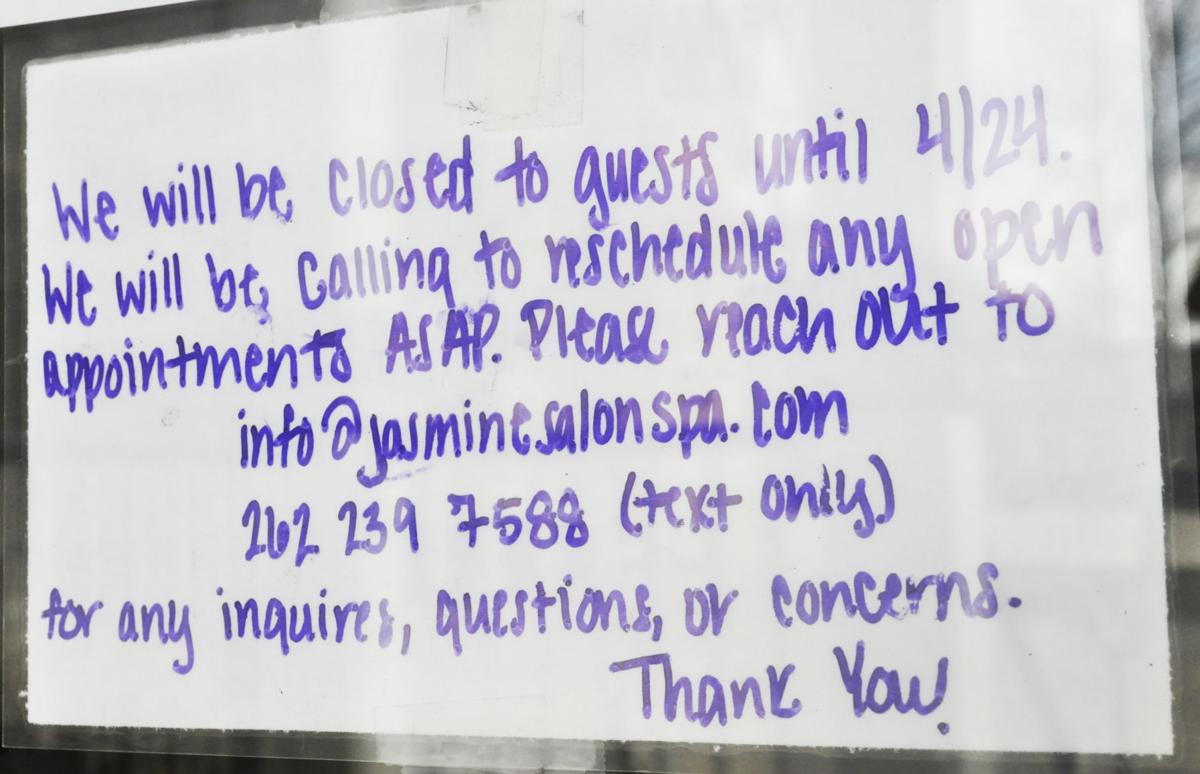 We will be closed to guests until 4/24.
We will be calling to reschedule any open
appointments ASAP. Please reach out to
info@jasminesalonspa.com
262 239 7588 (text only)
for any inquires, questions, or concerns.
Thank You!